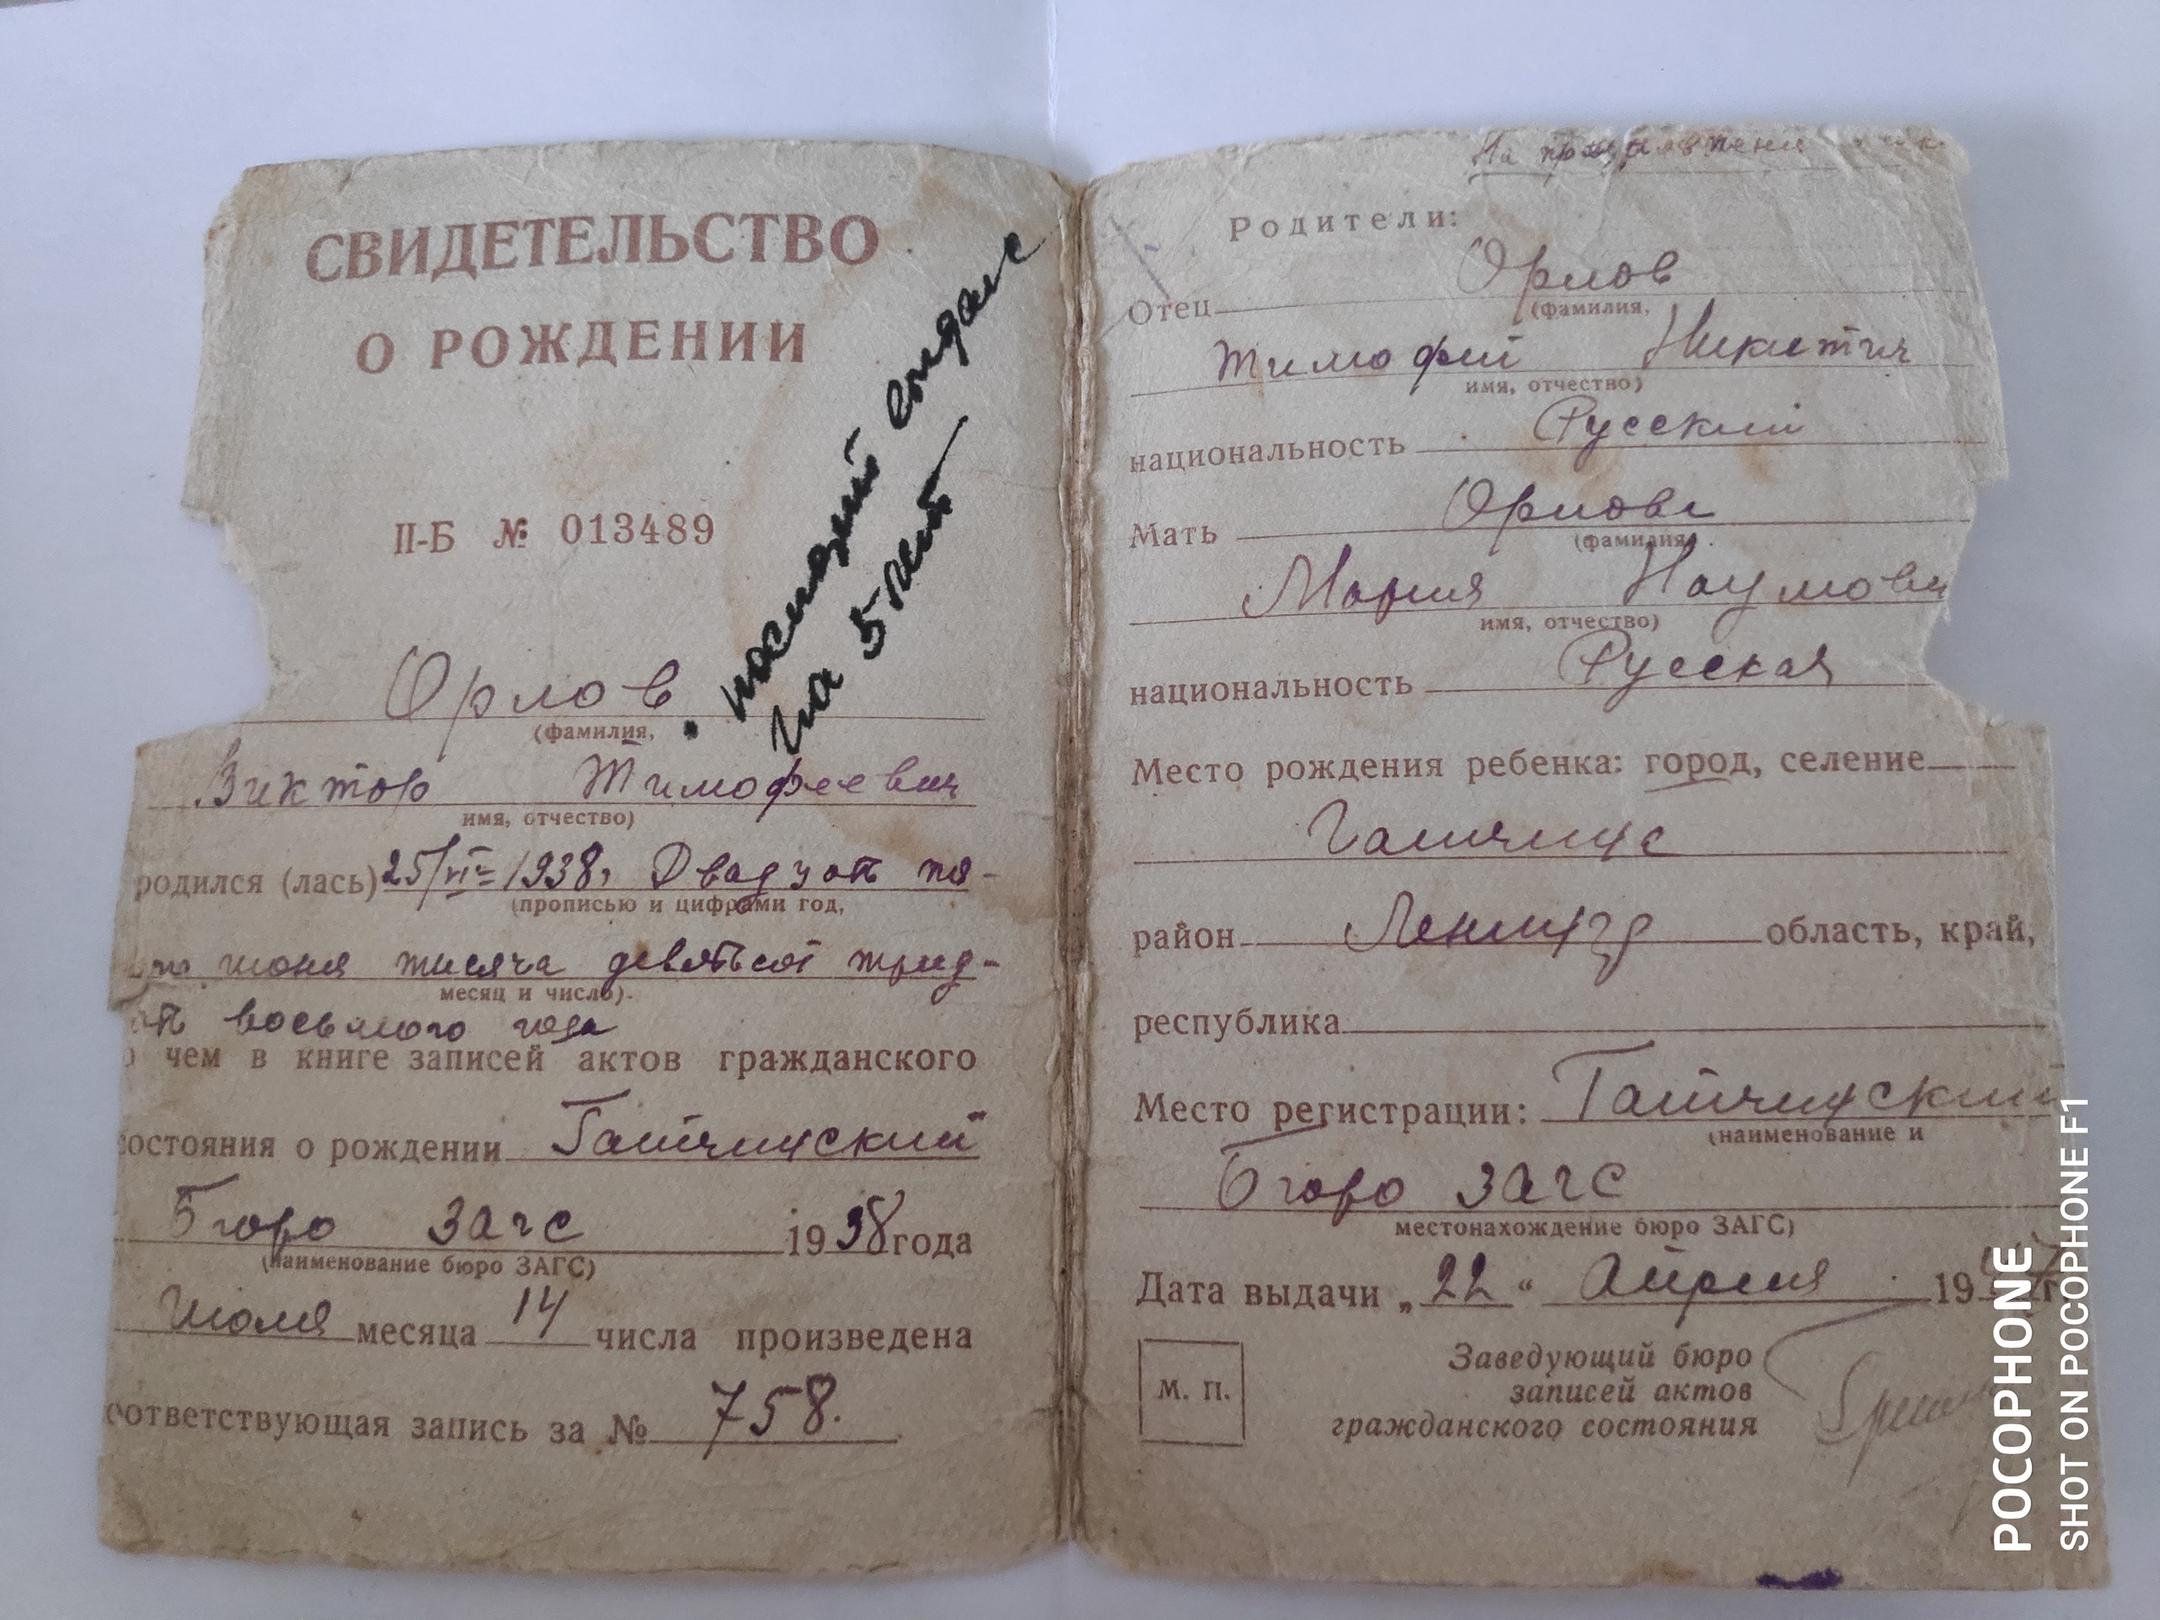 СВИДЕТЕЛЬСТВО
О РОЖДЕНИИ
II-Б № 013489
на 5 лет
Орлов
(фамилия,
Виктор Тимофеевич
имя, отчество)
родился (лась) 25/VI 1938, Двадцать пя-
(прописью и цифрами год,
июня тисяча девятьсот трид-
месяц и число).
ать восьмого года
о чем в книге записей актов гражданского
состояния о рождении Гатчинский
Бюро загс 1938 года
(наименование бюро ЗАГС)
Июля месяца 14 числа произведена
соответствующая запись за № 758.
Родители:
Отец Орлов
(фамилия,
Тимофей Никитич
имя, отчество)
национальность Русский
Мать Орлова
(фамилия,
Мария Наумовн
имя, отчество)
национальность Русская
Место рождения ребенка: город, селение
район Ленингр область, край,
республика
Место регистрации: Гатчинский
(наименование и
Бюро загс
местонахождение бюро ЗАГС)
Дата выдачи „22“ Апреля 19
М. П.
Заведующий бюро
записей актов
гражданского состояния
POCOPHONE
SHOT ON POCOPHONE F1